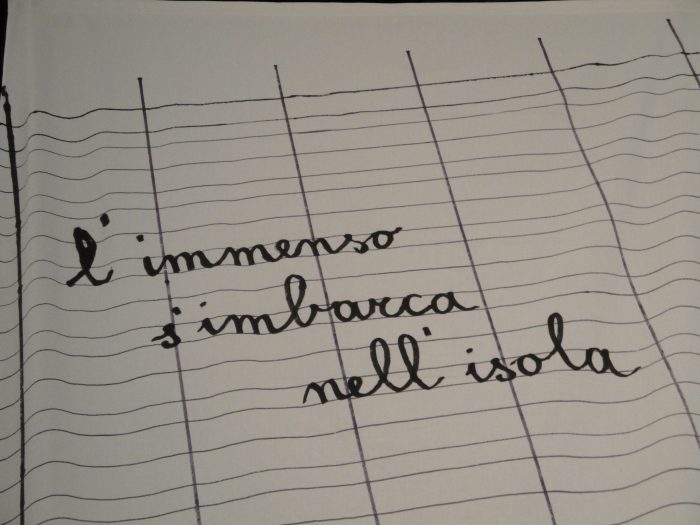 l'immenso
s'imbarca
nell'isola